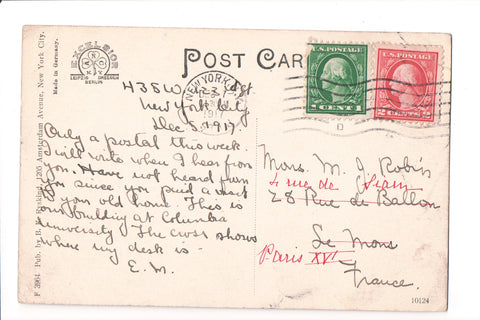 POST CARD
EXCELSIOR
LEIPZIG
DRESDEN
BERLIN
Made in Germany.
F 3964 Pub. by B. Ruskind, 1205 Amsterdam Avenue, New York City.
U.S. POSTAGE
1 CENT 1
U.S. POSTAGE
2 CENTS 2
NEW YORK
1917
438 W. St.
New York City
Dec 5. 1917.
Only a postal this week.
I will write when I hear from
you. Have not heard from
you since you paid a visit
to your old home. This is
our building at Columbia
University The cross shows
where my desk is -
E. M.
Mons. M. J. Robin
4 rue de Siam
28 Rue de Ballon
Le Mons
Paris XVI
France.
10124